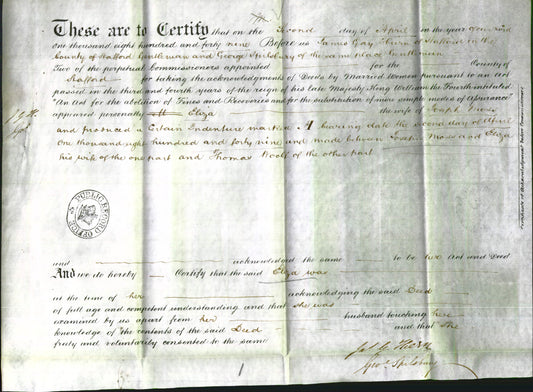 These are to Certify that on the Second day of April in the year of our Lord
one thousand eight hundred and forty nine Before us James Gay Hern of Stafford in the
County of Stafford Gentleman and George Spilsbury of the same place Gentleman
Two of the perpetual Commissioners appointed for the County of
Stafford for taking the acknowledgments of Deeds by Married Women pursuant to an act
passed in the third and fourth years of the reign of his late Majesty King William the Fourth intituled
"An Act for the abolition of Fines and Recoveries and for the substitution of more simple modes of Assurance"
appeared personally Eliza the wife of Joseph Moss
and produced a Certain Indenture marked A bearing date the second day of April
One thousand eight hundred and forty nine and made between Joseph Moss and Eliza
his wife of the one part and Thomas Woolf of the other part
PUBLIC RECORD OFFICE
and acknowledged the same to be her Act and Deed
And we do hereby Certify that the said Eliza was
at the time of her acknowledging the said Deed
of full age and competent understanding and that she was
examined by us apart from her husband touching her
knowledge of the contents of the said Deed and that she
freely and voluntarily consented to the same
Jas G Hern
Geo. Spilsbury